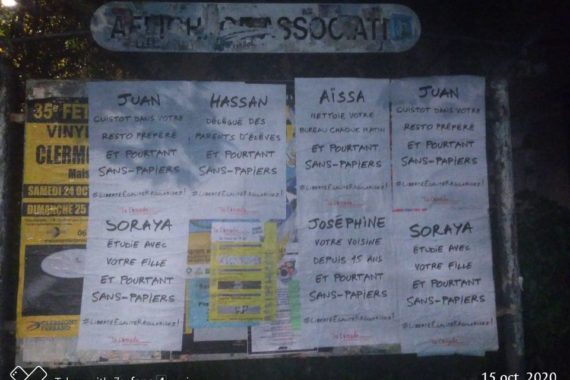 AFFICHAGE ASSOCIATI
35e FÊT
VINY
CLERM
Mai
SAMEDI 24 OC
DIMANCHE 25
CLERMONT
FERRAND
JUAN
CUISTOT DANS VOTRE
RESTO PRÉFÉRÉ
ET POURTANT
SANS-PAPIERS
#LIBERTÉÉGALITÉRÉGULARISEZ!
HASSAN
DÉLÉGUÉ DES
PARENTS D'ÉLÈVES
ET POURTANT
SANS-PAPIERS
#LIBERTÉÉGALITÉRÉGULARISEZ!
AÏSSA
NETTOIE VOTRE
BUREAU CHAQUE MATIN
ET POURTANT
SANS-PAPIERS
#LIBERTÉÉGALITÉRÉGULARISEZ!
JUAN
CUISTOT DANS VOTRE
RESTO PRÉFÉRÉ
ET POURTANT
SANS-PAPIERS
#LIBERTÉÉGALITÉRÉGULARISEZ!
SORAYA
ÉTUDIE AVEC
VOTRE FILLE
ET POURTANT
SANS-PAPIERS
#LIBERTÉÉGALITÉRÉGULARISEZ!
JOSÉPHINE
VOTRE VOISINE
DEPUIS 15 ANS
ET POURTANT
SANS-PAPIERS
#LIBERTÉÉGALITÉRÉGULARISEZ!
SORAYA
ÉTUDIE AVEC
VOTRE FILLE
ET POURTANT
SANS-PAPIERS
#LIBERTÉÉGALITÉRÉGULARISEZ!
15 oct. 2020